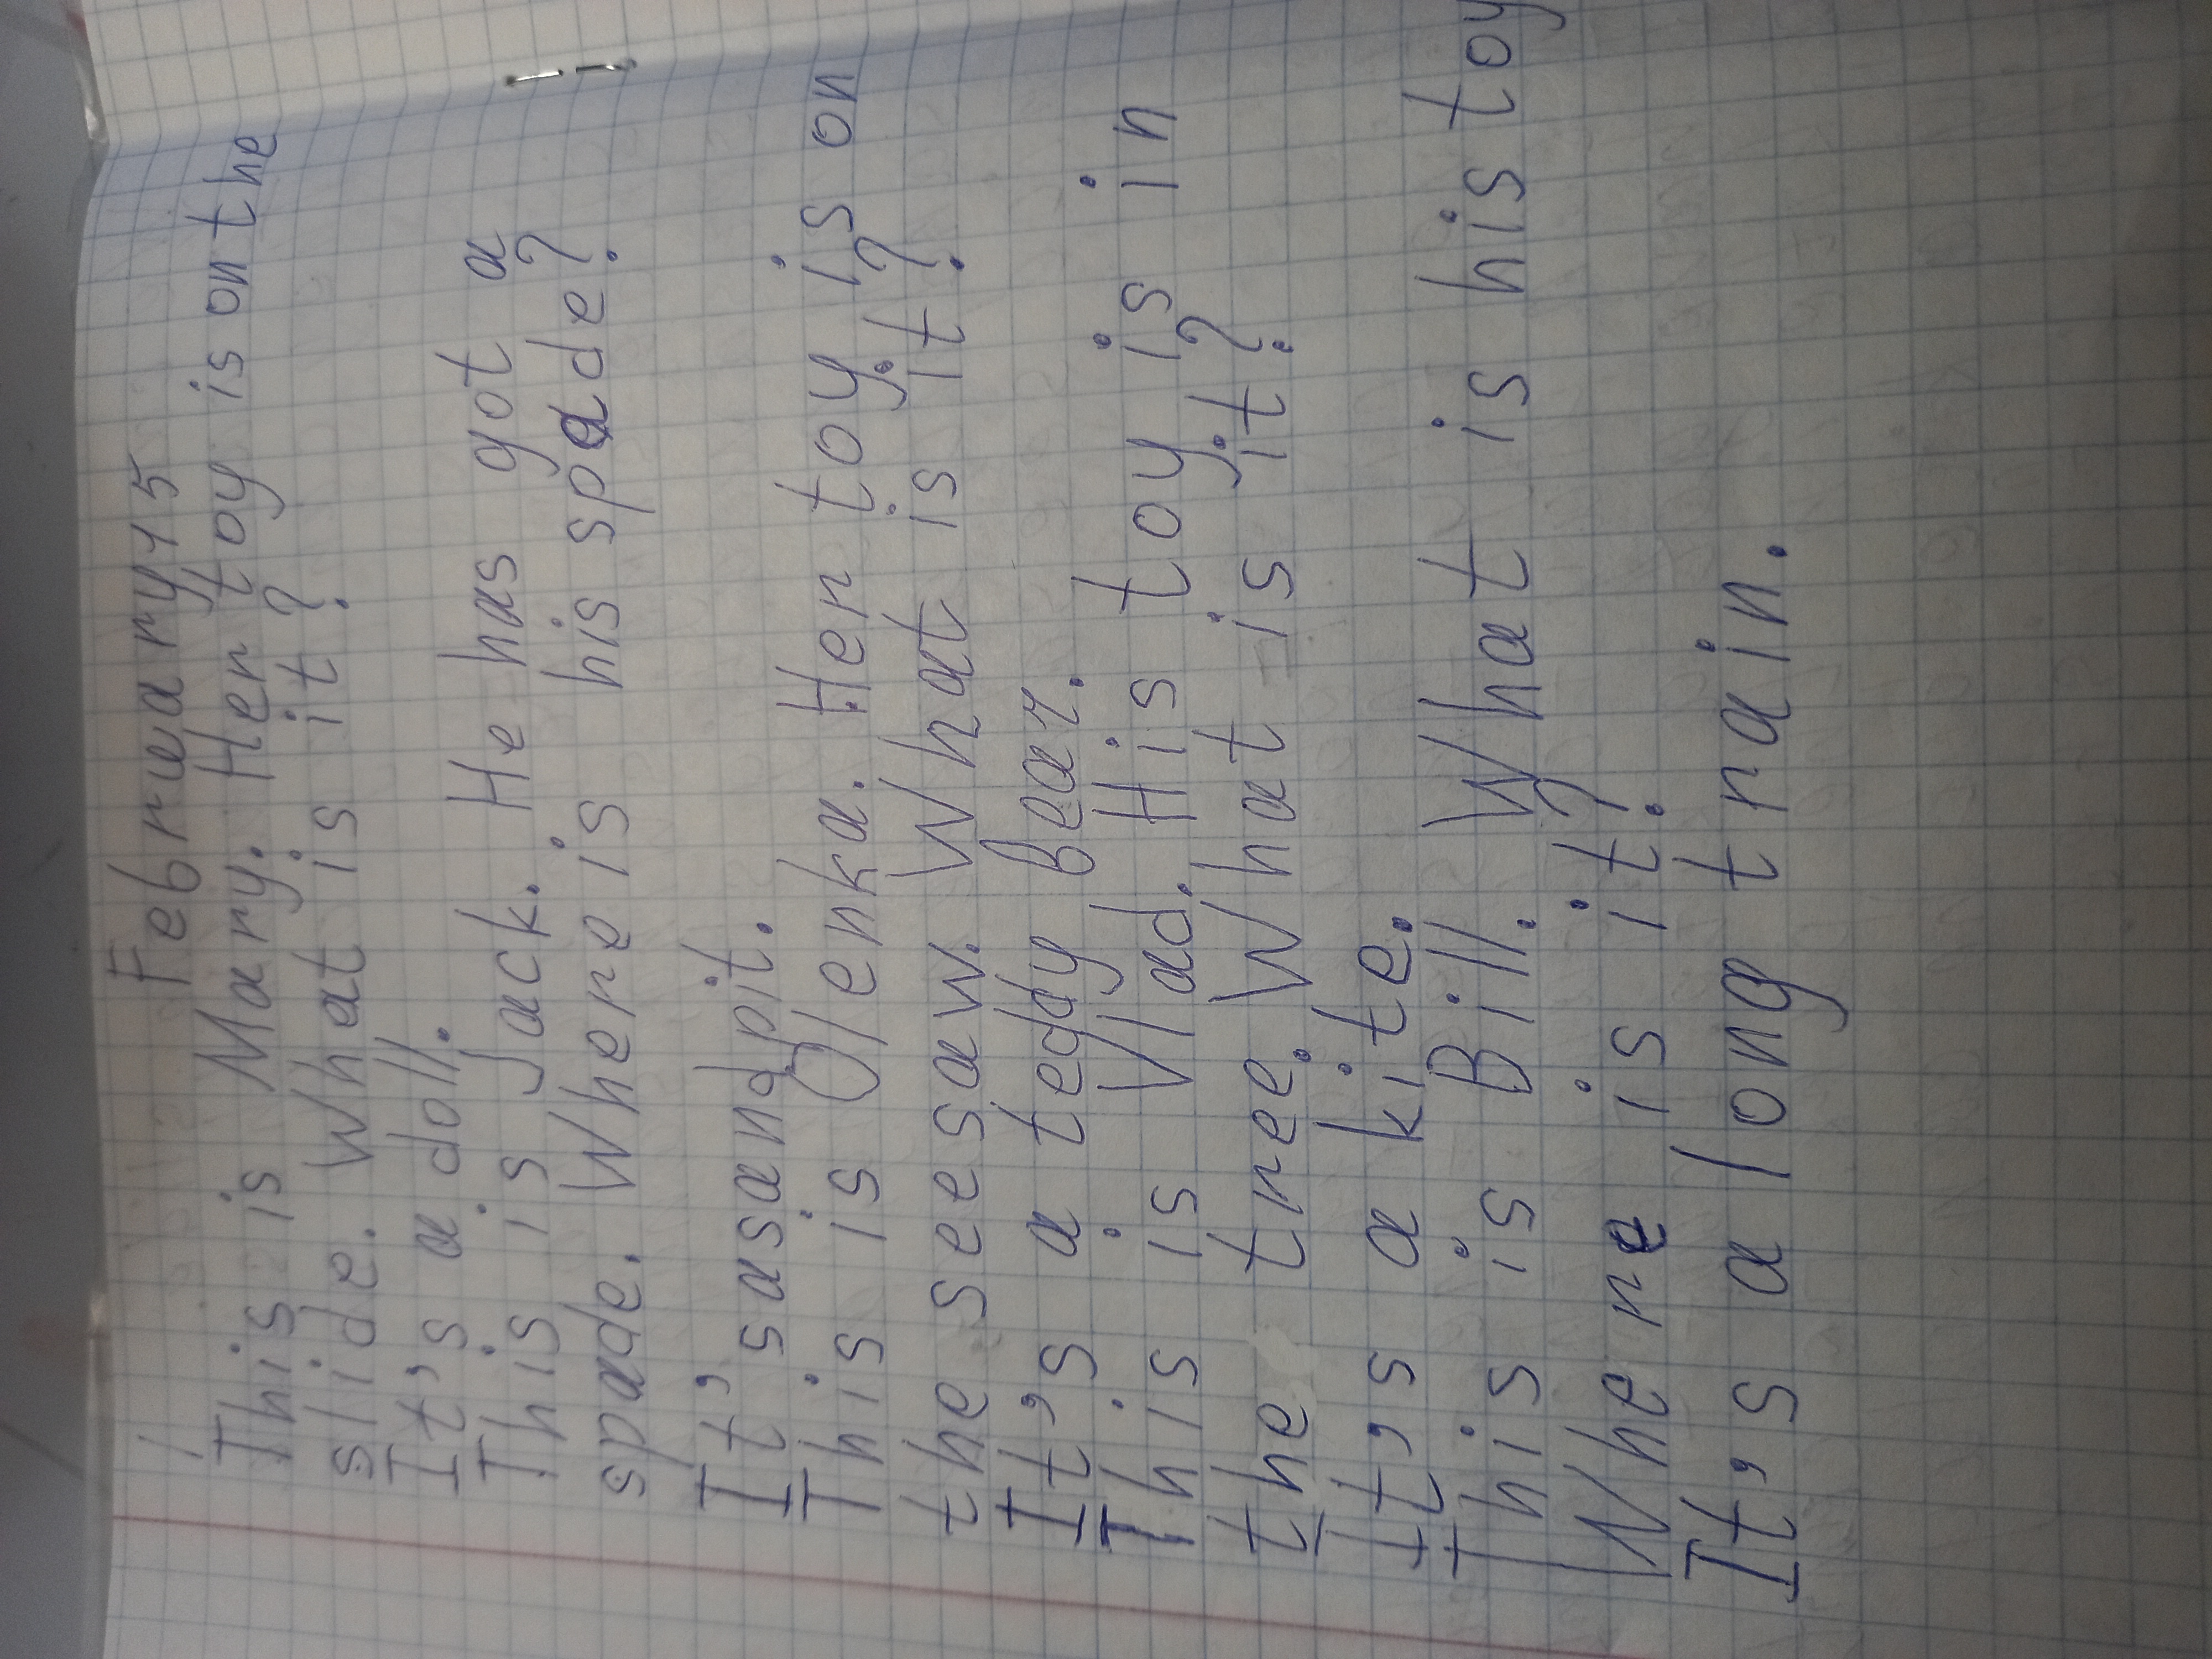 February 15
This is Mary. Her toy is on the
slide. What is it?
It's a doll.
This is Jack. He has got a
spade. Where is his spade?
It's asandpit.
This is Olenka. Her toy is on
the seesaw. What is it?
It's a tedy bear.
This is Vlad. His toy is in
the tree. What is it?
It's a kite.
This is Bill. What is his toy
Where is it?
It's a long train.